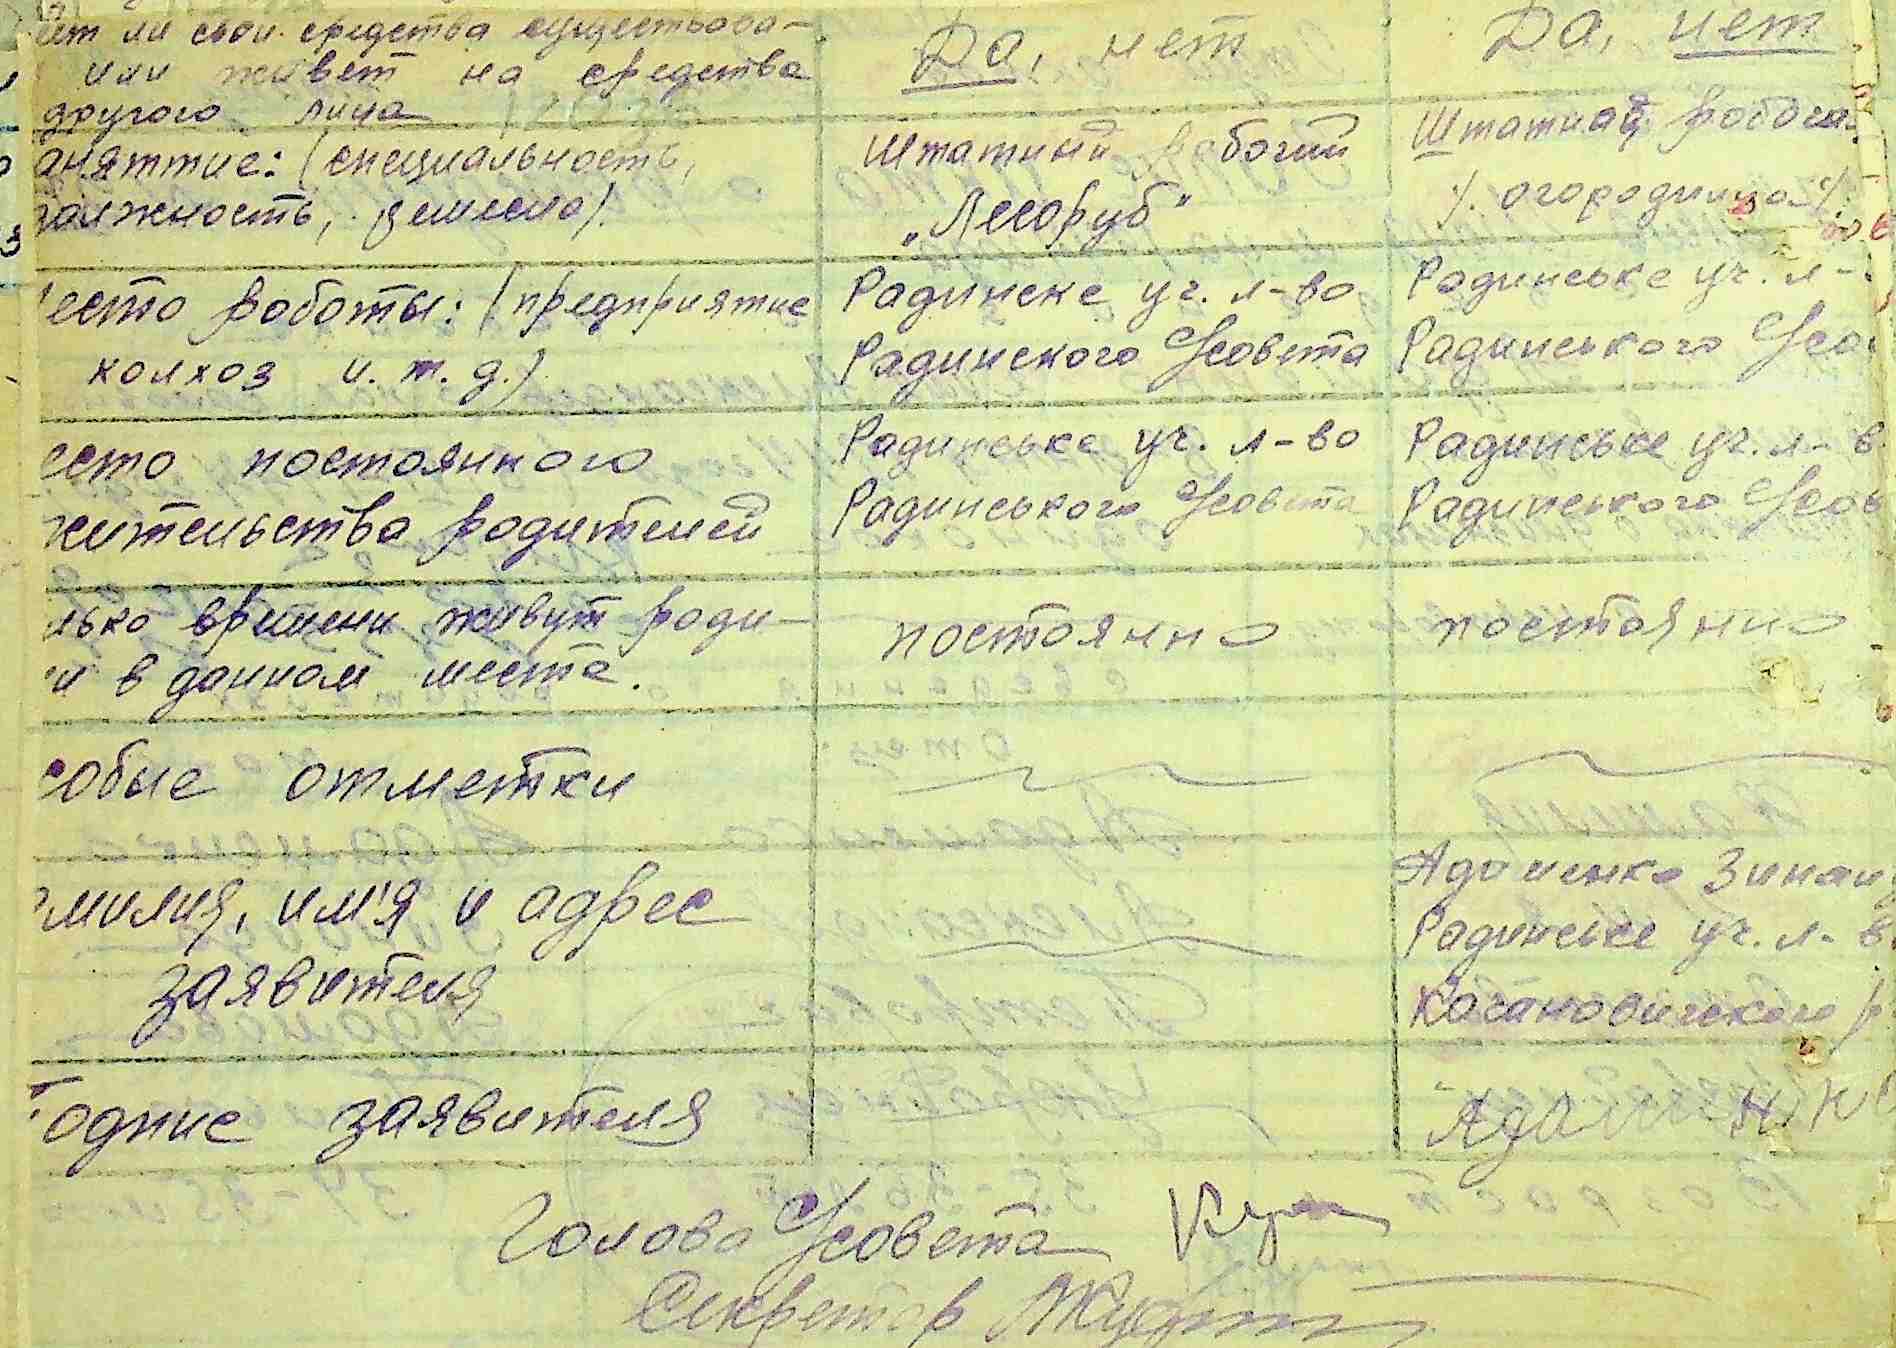 ет ли свои средства существова-
или живет на средства
другого лица
Да, нет
Да, нет
анятттие: (специальность,
должность, ремесло).
Штатний робочий
„Лесоруб"
Штатная робоча
/. огородница /
есто роботы: (предприятие
колхоз и. т. д.)
Радинске уч. л-во
Радинского С/совета
Радинське уч. л-
Радинського С/со
есто постоянного
жительства родителей
Радинське уч. л-во
Радинського С/совета
Радинське уч. л-в
Радинського С/сов
лько времени живут роди-
и в данном месте.
постоянно
постоянно
собые отметки
милия, им'я и адрес
заявителя
Адаменко Зинаи
Радинське уч. л-в
Кагановичского р
Подпис заявителя
Голова С/совета
Секретар